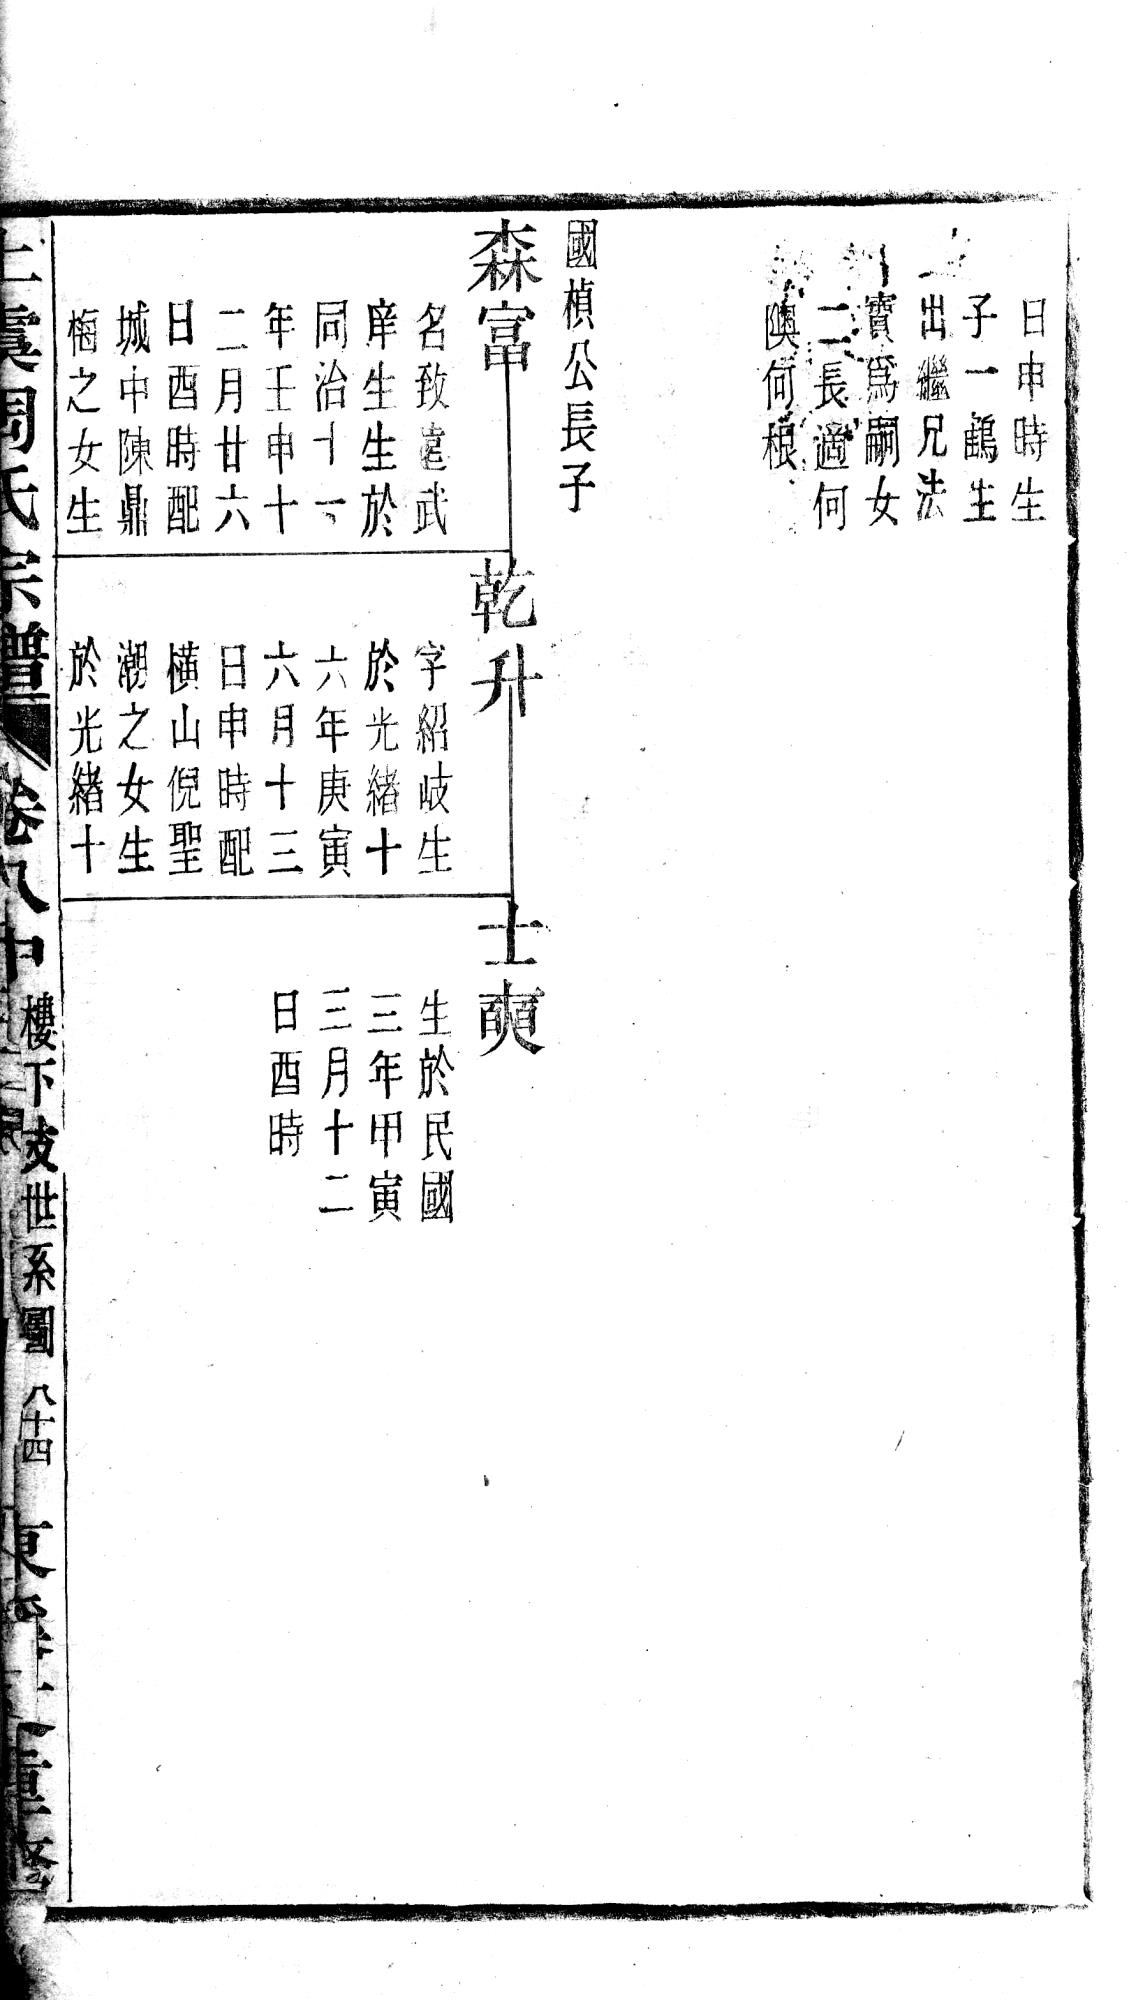 日申時生
子一鶴生
出繼兄法
寶為嗣女
二長適何
隩何根
國楨公長子
森富
名致遠武
庠生生於
同治十一
年壬申十
二月廿六
日酉時配
城中陳鼎
梅之女生
乾升
字紹岐生
於光緒十
六年庚寅
六月十三
日申時配
橫山倪聖
潮之女生
於光緒十
士奭
生於民國
三年甲寅
三月十二
日酉時
上虞周氏宗譜 卷八中
樓下支世系圖 八十四